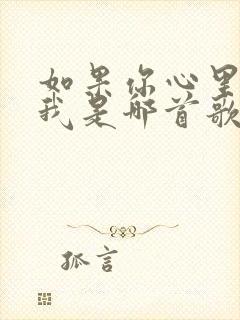 如果你心里
我是那首歌
孤言